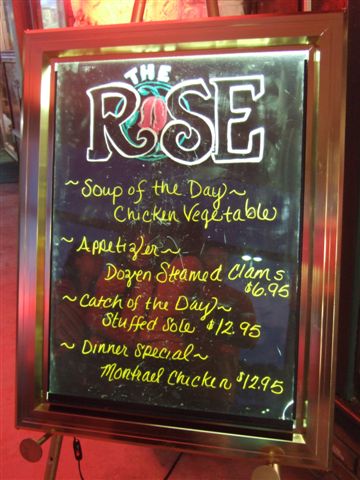 THE
ROSE
~ Soup of the Day ~
Chicken Vegetable
~ Appetizer ~
Dozen Steamed Clams
$6.95
~ Catch of the Day ~
Stuffed Sole $12.95
~ Dinner Special ~
Montreal Chicken $12.95